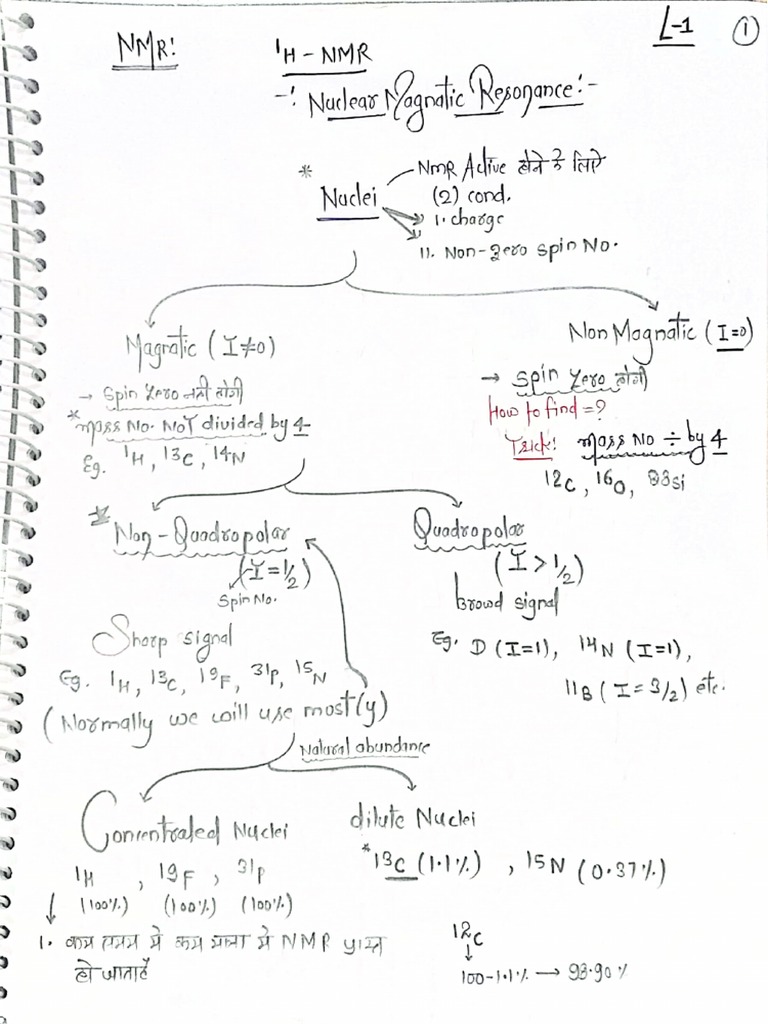 L-1 ①
NMR!
¹H - NMR
-: Nuclear Magnatic Resonance: -
* Nuclei
NMR Active होने के लिऐ
(2) cond.
I. charge
II. Non-zero spin No.
Magnatic (I≠0)
→ Spin Zero नही होगी
*mass No. NOT divided by 4
Eg. ¹H, ¹³C, ¹⁴N
Non Magnatic (I=0)
→ Spin Zero होगी
How to find = ?
Trick! mass No ÷ by 4
12C, 16O,
* Non-Quadropolar
(I = 1/2)
Spin No.
Sharp signal
Eg. ¹H, ¹³C, ¹⁹F, ³¹P, ¹⁵N
(Normally we will use most(y)
Quadropolar
(I > 1/2)
Browd signal
Eg. D (I=1), ¹⁴N (I=1),
11B (I = 3/2) etc.
Natural abundance
Concentrated Nuclei
¹H, ¹⁹F, ³¹P
(100%) (100%) (100%)
1. कम समय मे कम मात्रा मे NMR प्राप्त
हो जाता है
dilute Nuclei
*¹³C (1.1%), ¹⁵N (0.37%)
12C
100-1.1% → 98.90 %